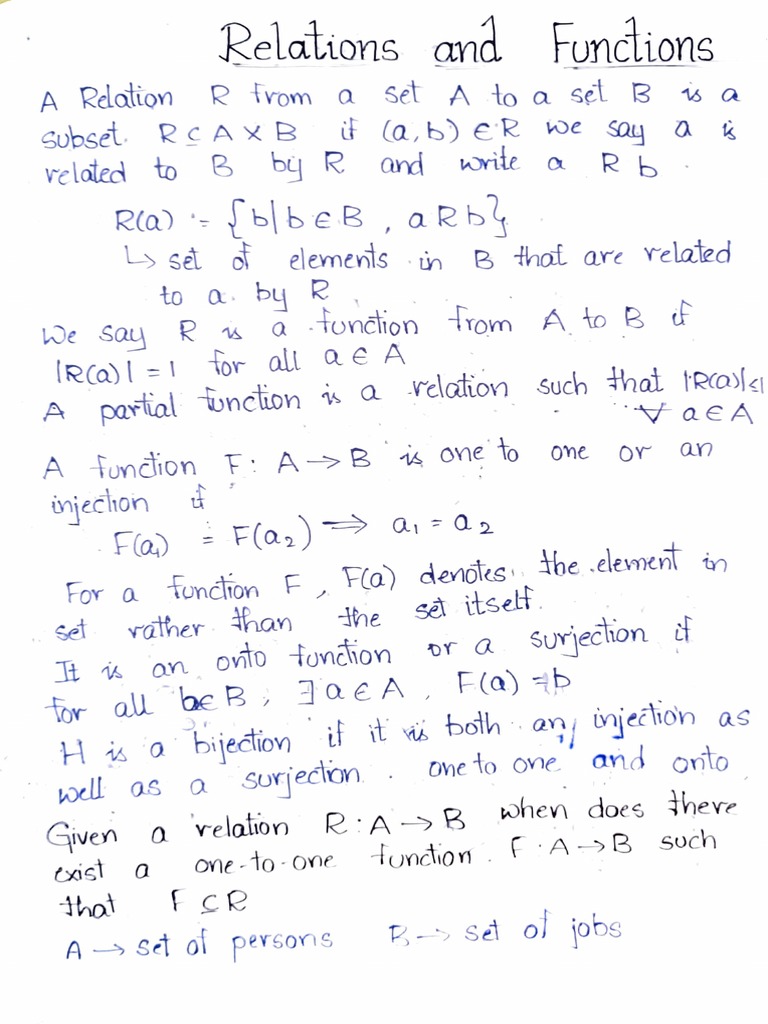 Relations and Functions
A Relation R from a set A to a set B is a
subset. R ⊆ A × B if (a, b) ∈ R we say a is
related to B by R and write a R b.
R(a) := {b | b ∈ B, a R b}
↳ set of elements in B that are related
to a by R
We say R is a function from A to B if
|R(a)| = 1 for all a ∈ A
A partial function is a relation such that |R(a)| ≤ 1
∀ a ∈ A
A function F : A → B is one to one or an
injection if
F(a₁) = F(a₂) ⟹ a₁ = a₂
For a function F, F(a) denotes the element in
set rather than the set itself.
It is an onto function or a surjection if
for all b ∈ B, ∃ a ∈ A, F(a) = b
It is a bijection if it is both an injection as
well as a surjection. one to one and onto
Given a relation R : A → B when does there
exist a one-to-one function. F : A → B such
that F ⊆ R
A → set of persons B → set of jobs